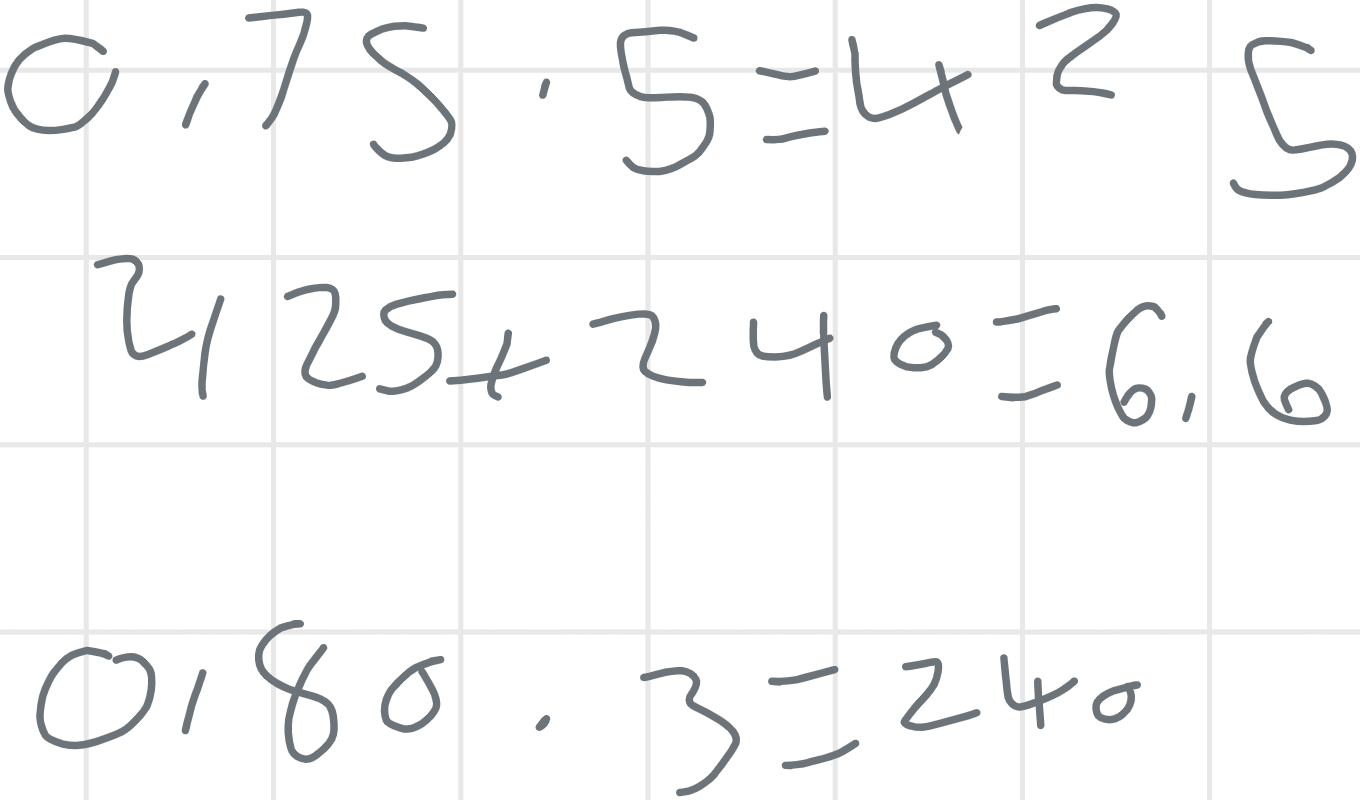 0,75 · 5 = 4 2 5
4,25 + 240 = 6,6
0,80 · 3 = 240